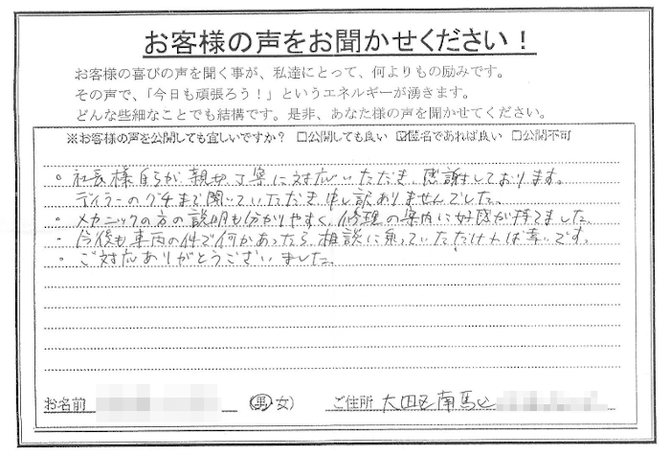 お客様の声をお聞かせください！
お客様の喜びの声を聞く事が、私達にとって、何よりもの励みです。
その声で、「今日も頑張ろう！」というエネルギーが湧きます。
どんな些細なことでも結構です。是非、あなた様の声を聞かせてください。
※お客様の声を公開しても宜しいですか？ □公開しても良い ☑匿名であれば良い □公開不可
。社長様自らが親切丁寧に対応いただき感謝しております。
ディラーのグチまで聞いていただき申し訳ありませんでした。
・メカニックの方の説明も分かりやすく、修理の案内に好感が持てました。
・今後も車両の件で何かあったら相談に乗っていただければ幸いです。
・ご対応ありがとうございました。
お名前 (男・女) ご住所 大田区南馬込